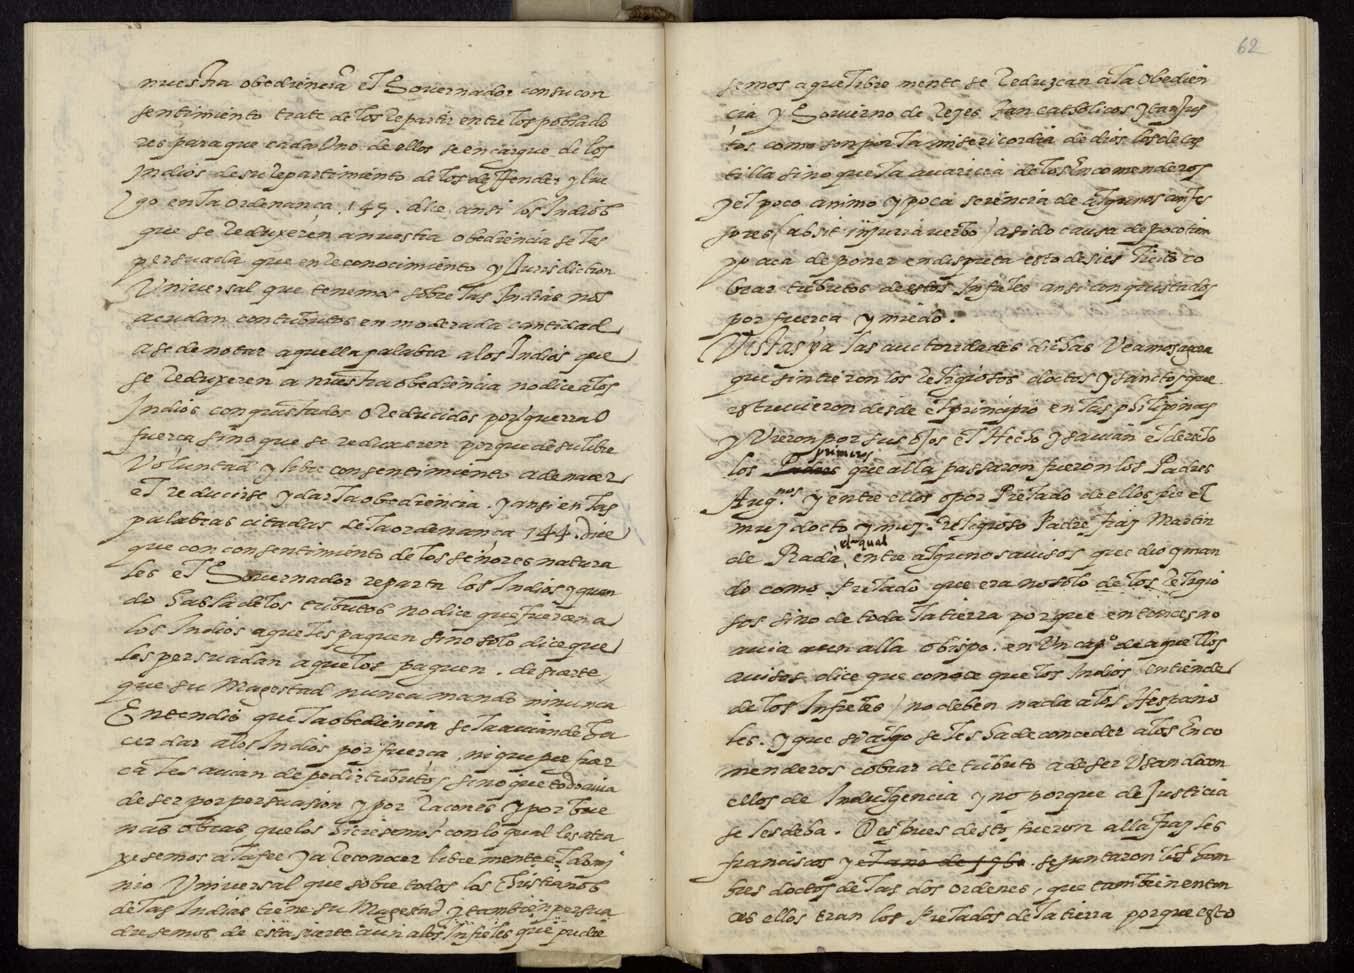 nuestra obediençia el Governador con su con
sentimiento trate de los repartir entre los poblado
res para que cada Uno de ellos se encargue de los
Indios de su repartimiento de los deffender y lue
go en la ordenança .145. dice ansi los Indios
que se reduxeren a nuestra obediencia se les
persuada que en reconocimiento y Jurisdiction
Universal que tenemos sobre las Indias nos
acudan con tributos en moderada cantidad
a se de notar aquella palabra a los Indios que
se reduxeren a nuestra obediencia no dice a los
Indios conquistados o reducidos por guerra o
fuerca sino que se reduxeren porque de su libre
Voluntad y libre consentimiento a de nacer
el reducirse y dar la obediencia . y ansi en las
palabras citadas de la ordenança 144. dice
que con consentimiento de los señores natura
les el Governador reparta los Indios y quan
do habla de los tributos no dice que fuercen a
los Indios a que les paguen sino solo dice que
les persuadan a que los paguen . de suerte
que su Magestad nunca mando ni nunca
Entendio que la obediencia se la avian de ha
cer dar a los Indios por fuerça, ni que por fuer
ca les avian de pedir tributos sino que todo avia
de ser por persuasion y por racones y por bue
nas obras que los hiciesemos con lo qual los atra
xesemos a la fee y a reconocer libremente el domi
nio Universal que sobre todos los Christianos
de las Indias tiene su Magestad y tambien persua
diesemos de esta parte aun a los Infieles que pudie
62
semos a que libre mente se reduzcan a la obedien
cia y Govierno de Reyes tan catholicos y tan Jus
tos como son por la misericordia de dios los de cas
tilla sino que la avaricia de los Encomenderos
y el poco animo y poca sciencia de algunos confes
sores (absit injuria verbo) a sido causa de poco tiem
po aca de poner en disputa esto de si es licito co
brar tributos de estos Infieles ansi conquistados
por fuerca y miedo .
Vistas ya las auctoridades dichas Veamos agora
que sintieron los religiosos doctos y sanctos que
estuvieron desde el principio en las philipinas
y Vieron por sus ojos el Hecho y savian el derecho
primeros
los Padres que alla passaron fueron los Padres
Aug.nos y entre ellos o por Prelado de ellos fue el
muy docto y muy Religioso Padre fray Martin
el qual
de Rada, entre algunos avisos que dio y man
do como Prelado que era no solo de los religio
sos sino de toda la tierra porque entonces no
avia aun alla obispo. en Un cap.o de aquellos
avisos dice que conoce que los Indios (entiende
de los Infieles) no deben nada a los Hespaño
les. y que si algo se les ha de conceder a los Enco
menderos cobrar de tributo a de ser Usando con
ellos de Indulgencia y no porque de Justicia
se les deba . Despues desto fueron alla frayles
franciscos y el año de 1580. se juntaron los hom
bres doctos de las dos ordenes, que tambien enton
ces ellos eran los Prelados de la tierra porque esto